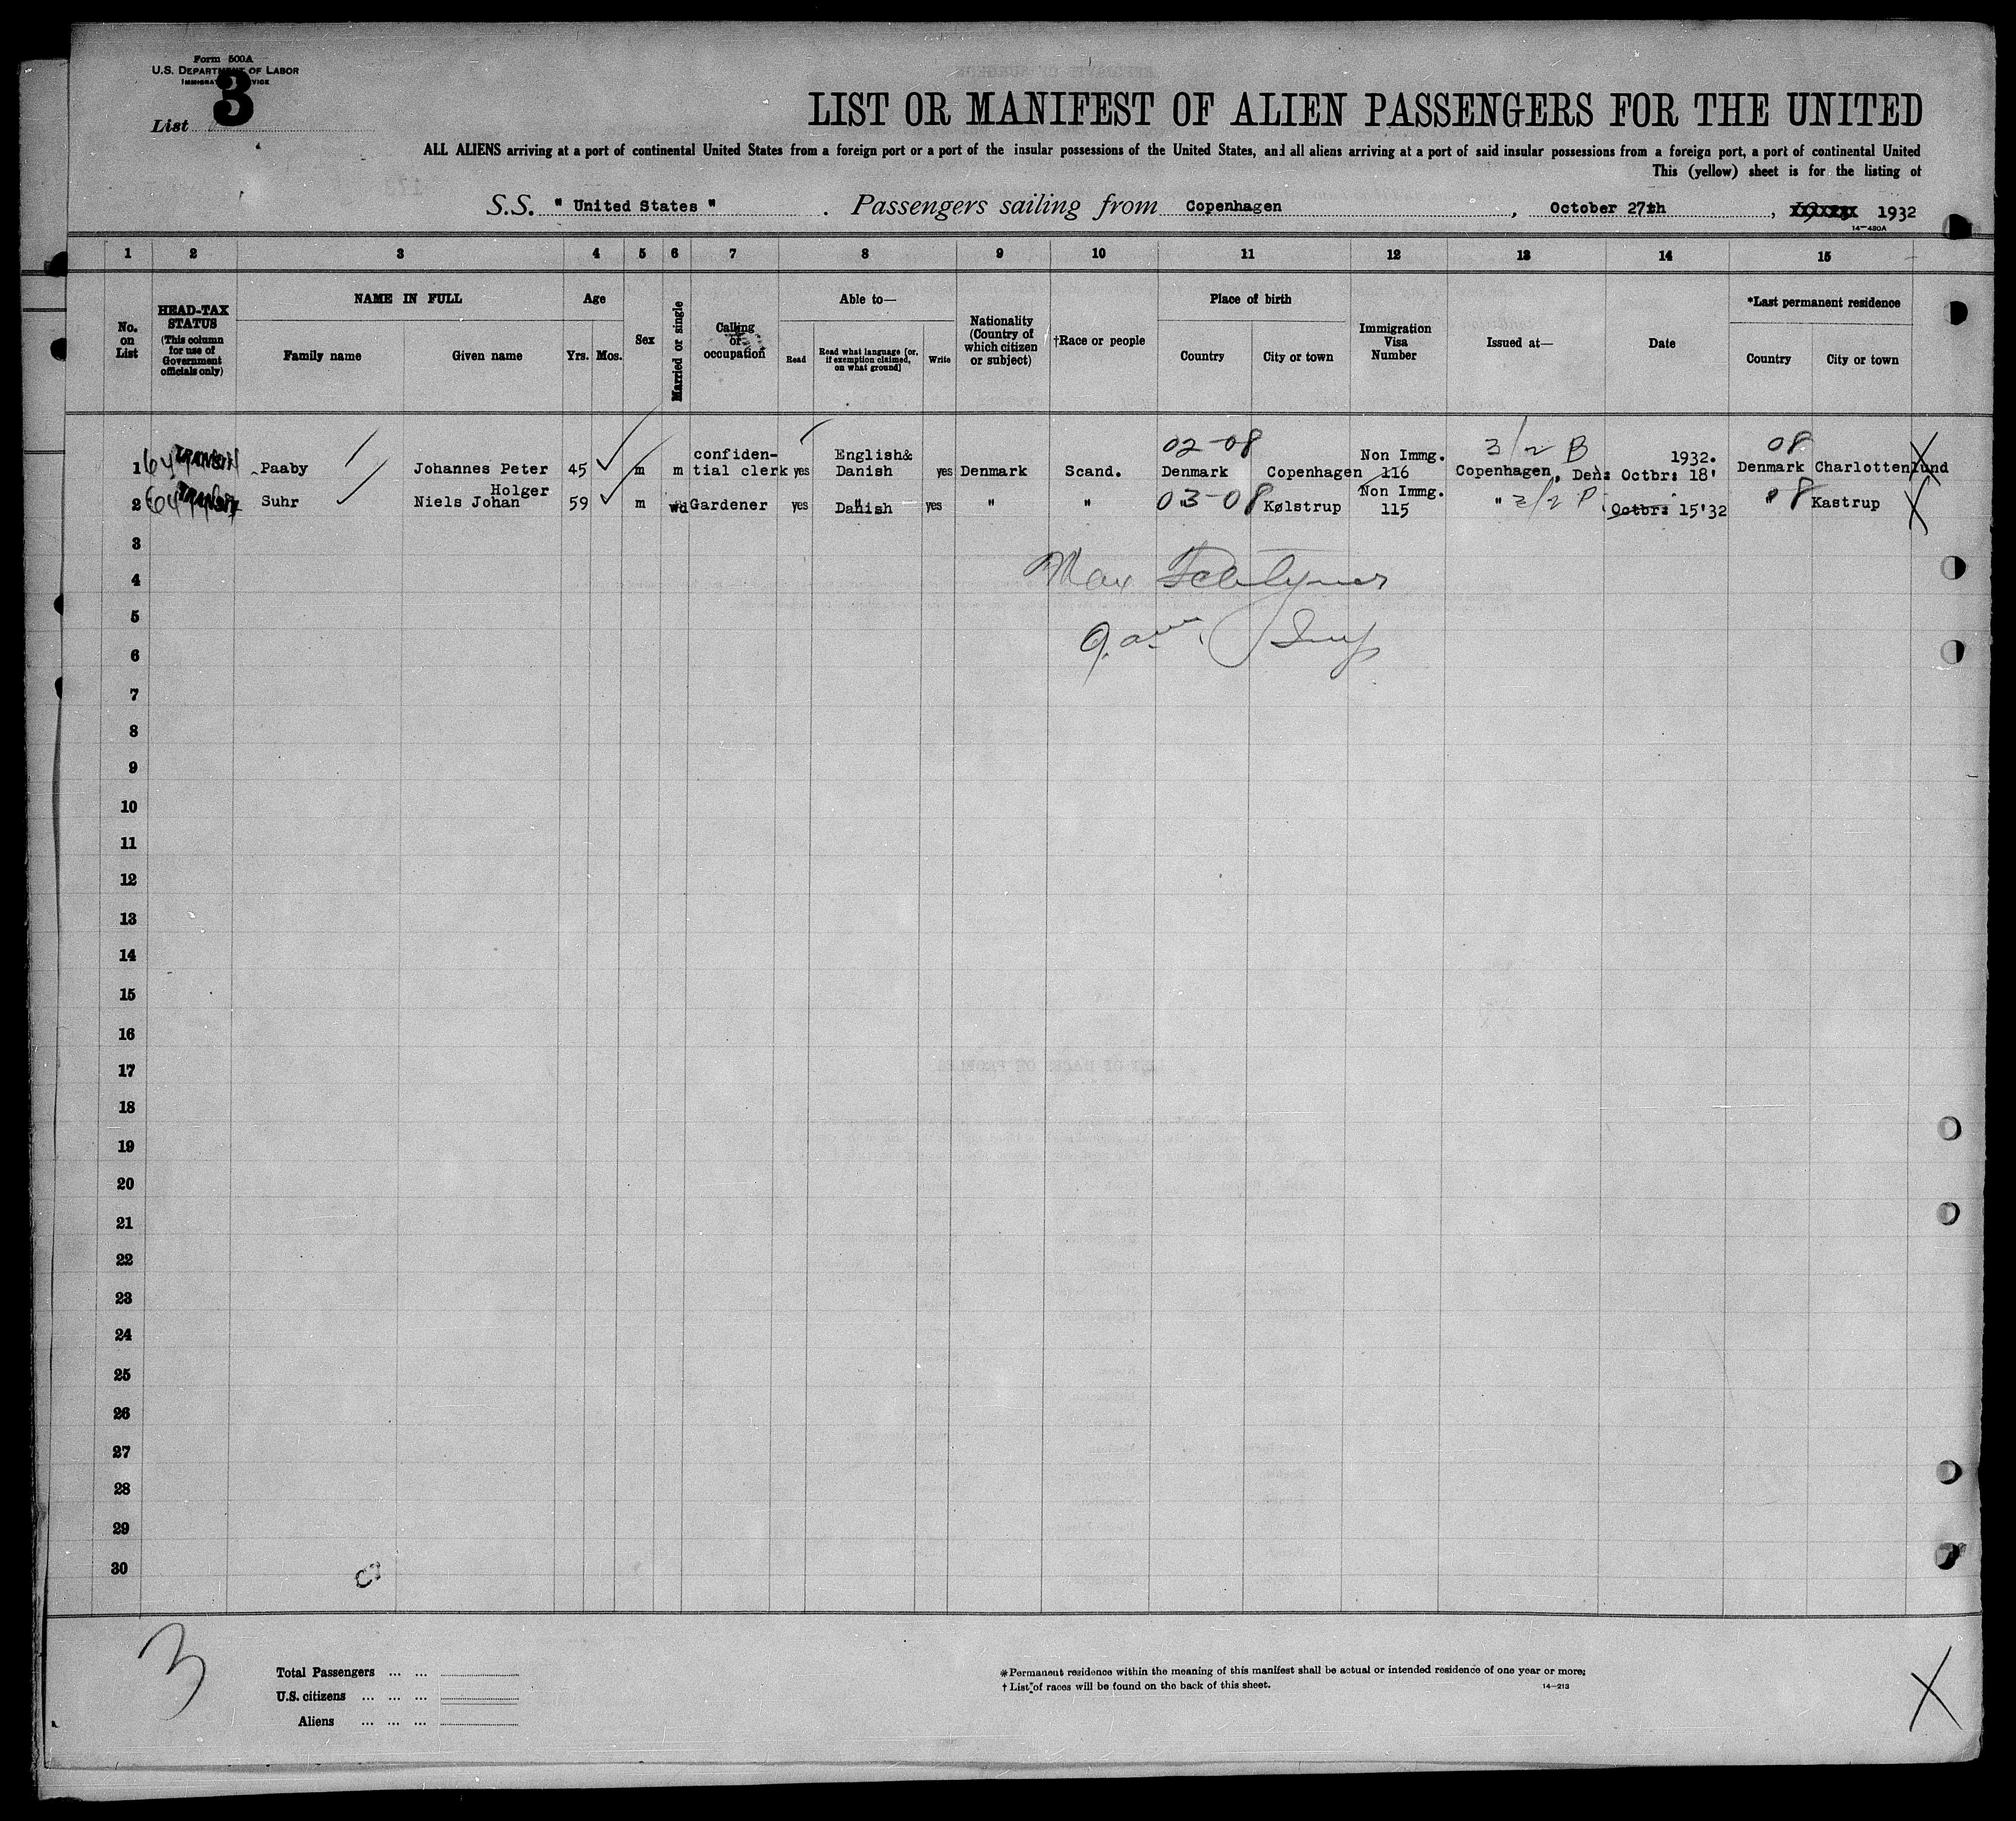 Form 500A
U.S. DEPARTMENT OF LABOR
IMMIGRATION SERVICE
List 3
LIST OR MANIFEST OF ALIEN PASSENGERS FOR THE UNITED
ALL ALIENS arriving at a port of continental United States from a foreign port or a port of the insular possessions of the United States, and all aliens arriving at a port of said insular possessions from a foreign port, a port of continental United
This (yellow) sheet is for the listing of
S.S. " United States ". Passengers sailing from Copenhagen, October 27th, 1932
14-480A
1 2 3 4 5 6 7 8 9 10 11 12 13 14 15
No. on List
HEAD-TAX STATUS (This column for use of Government officials only)
NAME IN FULL
Family name Given name
Age
Yrs. Mos.
Sex
Married or single
Calling or occupation
Able to—
Read Read what language [or, if exemption claimed, on what ground] Write
Nationality (Country of which citizen or subject)
†Race or people
Place of birth
Country City or town
Immigration Visa Number
Issued at—
Date
*Last permanent residence
Country City or town
02-08 3/2 B 08
confiden- English& Non Immg. 1932.
1 TRANSIT Paaby Johannes Peter 45 m m tial clerk yes Danish yes Denmark Scand. Denmark Copenhagen 116 Copenhagen, Den: Octbr: 18' Denmark Charlottenlund
Holger Non Immg.
2 TRANSIT Suhr Niels Johan 59 m wd Gardener yes Danish yes " " 03-08 Kølstrup 115 " 3/2 Octbr: 15'32 " 8 Kastrup
3
4 Max
5
6
7
8
9
10
11
12
13
14
15
16
17
18
19
20
21
22
23
24
25
26
27
28
29
30
3
Total Passengers ... ...
U.S. citizens ... ... ...
Aliens ... ... ...
*Permanent residence within the meaning of this manifest shall be actual or intended residence of one year or more.
† List of races will be found on the back of this sheet.
14-213
X